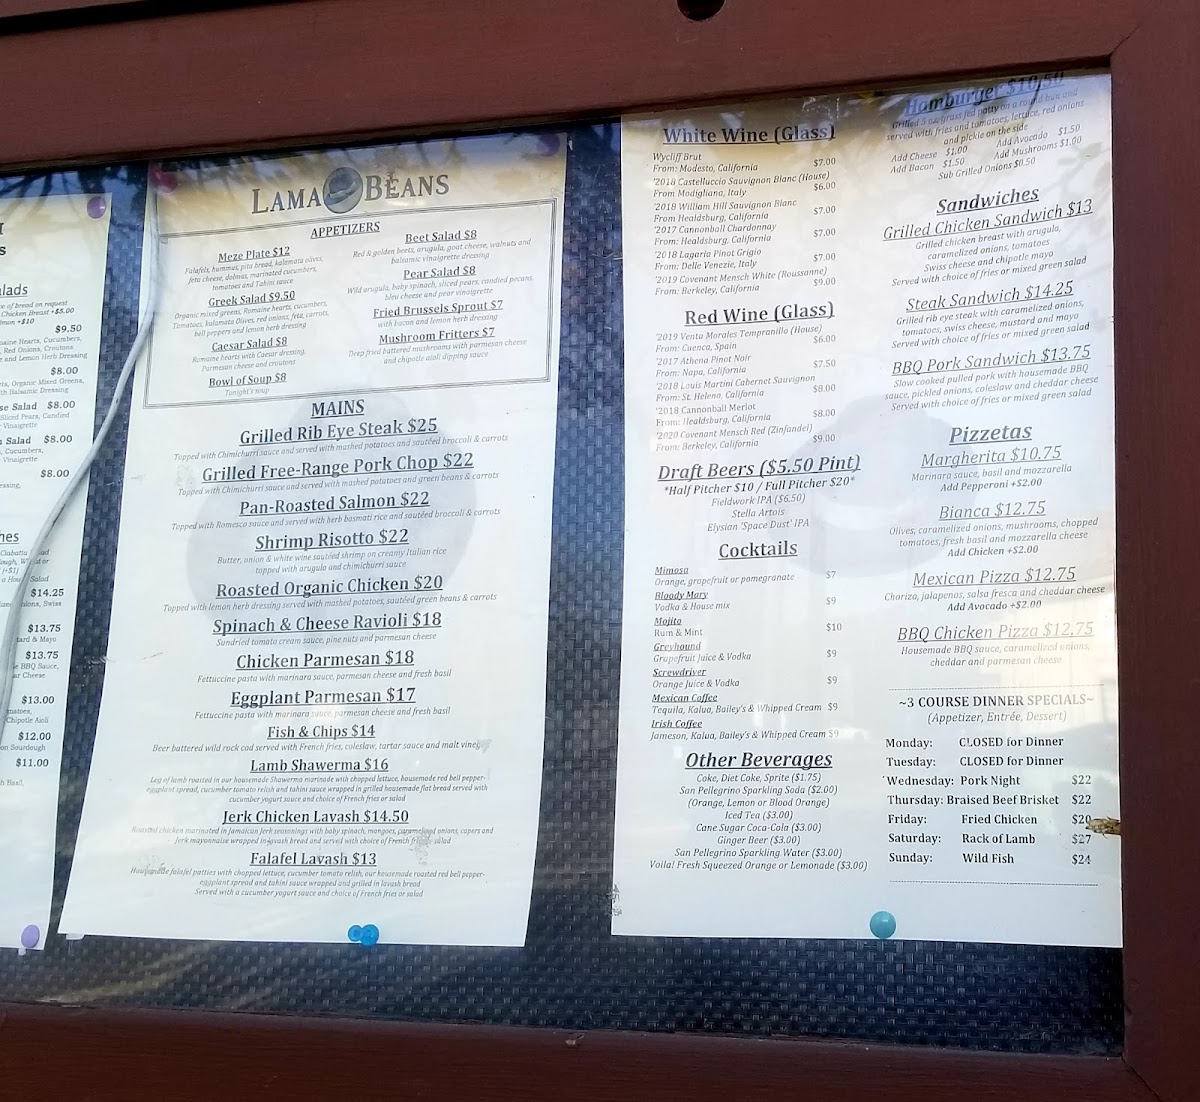 alads
ce of bread on request
Chicken Breast +$5.00
+$10
$9.50
maine Hearts, Cucumbers,
Red Onions, Croutons
and Lemon Herb Dressing
$8.00
Organic Mixed Greens,
Balsamic Dressing
se Salad $8.00
Sliced Pears, Candied
Vinaigrette
Salad $8.00
Cucumbers,
Vinaigrette
$8.00
hes
Salad
$14.25
Swiss
$13.75
& Mayo
$13.75
BBQ Sauce,
Cheese
$13.00
Chipotle Aioli
$12.00
on Sourdough
$11.00
LAMA BEANS
APPETIZERS
Meze Plate $12
Falafels, hummus, pita bread, kalamata olives,
feta cheese, dolmas, marinated cucumbers,
tomatoes and Tahini sauce
Greek Salad $9.50
Organic mixed greens, Romaine hearts, cucumbers,
Tomatoes, kalamata Olives, red onions, feta, carrots,
bell peppers and lemon herb dressing
Caesar Salad $8
Romaine hearts with Caesar dressing,
Parmesan cheese and croutons
Bowl of Soup $8
Tonight's soup
Beet Salad $8
Red & golden beets, arugula, goat cheese, walnuts and
balsamic vinaigrette dressing
Pear Salad $8
Wild arugula, baby spinach, sliced pears, candied pecans,
bleu cheese and pear vinaigrette
Fried Brussels Sprout $7
with bacon and lemon herb dressing
Mushroom Fritters $7
Deep fried battered mushrooms with parmesan cheese
and chipotle aioli dipping sauce
MAINS
Grilled Rib Eye Steak $25
Topped with Chimichurri sauce and served with mashed potatoes and sautéed broccoli & carrots
Grilled Free-Range Pork Chop $22
Topped with Chimichurri sauce and served with mashed potatoes and green beans & carrots
Pan-Roasted Salmon $22
Topped with Romesco sauce and served with herb basmati rice and sautéed broccoli & carrots
Shrimp Risotto $22
Butter, onion & white wine sautéed shrimp on creamy Italian rice
topped with arugula and chimichurri sauce
Roasted Organic Chicken $20
Topped with lemon herb dressing served with mashed potatoes, sautéed green beans & carrots
Spinach & Cheese Ravioli $18
Sundried tomato cream sauce, pine nuts and parmesan cheese
Chicken Parmesan $18
Fettuccine pasta with marinara sauce, parmesan cheese and fresh basil
Eggplant Parmesan $17
Fettuccine pasta with marinara sauce, parmesan cheese and fresh basil
Fish & Chips $14
Beer battered wild rock cod served with French fries, coleslaw, tartar sauce and malt vinegar
Lamb Shawerma $16
Leg of lamb roasted in our housemade Shawerma marinade with chopped lettuce, housemade red bell pepper-
eggplant spread, cucumber tomato relish and tahini sauce wrapped in grilled housemade flat bread served with
cucumber yogurt sauce and choice of French fries or salad
Jerk Chicken Lavash $14.50
Roasted chicken marinated in Jamaican Jerk seasonings with baby spinach, mangoes, caramelized onions, capers and
Jerk mayonnaise wrapped in lavash bread and served with choice of French fries salad
Falafel Lavash $13
Housemade falafel patties with chopped lettuce, cucumber tomato relish, our housemade roasted red bell pepper-
eggplant spread and tahini sauce wrapped and grilled in lavash bread
Served with a cucumber yogurt sauce and choice of French fries or salad
White Wine (Glass)
Wycliff Brut
From: Modesto, California $7.00
'2018 Castelluccio Sauvignon Blanc (House)
From Modigliana, Italy $6.00
'2018 William Hill Sauvignon Blanc
From Healdsburg, California $7.00
'2017 Cannonball Chardonnay
From: Healdsburg, California $7.00
'2018 Lagaria Pinot Grigio
From: Delle Venezie, Italy $7.00
'2019 Covenant Mensch White (Roussanne)
From: Berkeley, California $9.00
Red Wine (Glass)
'2019 Venta Morales Tempranillo (House)
From: Cuenca, Spain $6.00
'2017 Athena Pinot Noir
From: Napa, California $7.50
'2018 Louis Martini Cabernet Sauvignon
From: St. Heleno, California $8.00
'2018 Cannonball Merlot
From: Healdsburg, California $8.00
'2020 Covenant Mensch Red (Zinfandel)
From: Berkeley, California $9.00
Draft Beers ($5.50 Pint)
*Half Pitcher $10 / Full Pitcher $20*
Fieldwork IPA ($6.50)
Stella Artois
Elysian 'Space Dust' IPA
Cocktails
Mimosa
Orange, grapefruit or pomegranate $7
Bloody Mary
Vodka & House mix $9
Mojito
Rum & Mint $10
Greyhound
Grapefruit Juice & Vodka $9
Screwdriver
Orange Juice & Vodka $9
Mexican Coffee
Tequila, Kalua, Bailey's & Whipped Cream $9
Irish Coffee
Jameson, Kalua, Bailey's & Whipped Cream $9
Other Beverages
Coke, Diet Coke, Sprite ($1.75)
San Pellegrino Sparkling Soda ($2.00)
(Orange, Lemon or Blood Orange)
Iced Tea ($3.00)
Cane Sugar Coca-Cola ($3.00)
Ginger Beer ($3.00)
San Pellegrino Sparkling Water ($3.00)
Voila! Fresh Squeezed Orange or Lemonade ($3.00)
Hamburger $10.50
Grilled 5 oz grass fed patty on a round bun and
served with fries and tomatoes, lettuce, red onions
and pickle on the side
Add Cheese $1.00 Add Avocado $1.50
Add Bacon $1.50 Add Mushrooms $1.00
Sub Grilled Onions $0.50
Sandwiches
Grilled Chicken Sandwich $13
Grilled chicken breast with arugula,
caramelized onions, tomatoes
Swiss cheese and chipotle mayo
Served with choice of fries or mixed green salad
Steak Sandwich $14.25
Grilled rib eye steak with caramelized onions,
tomatoes, swiss cheese, mustard and mayo
Served with choice of fries or mixed green salad
BBQ Pork Sandwich $13.75
Slow cooked pulled pork with housemade BBQ
sauce, pickled onions, coleslaw and cheddar cheese
Served with choice of fries or mixed green salad
Pizzetas
Margherita $10.75
Marinara sauce, basil and mozzarella
Add Pepperoni +$2.00
Bianca $12.75
Olives, caramelized onions, mushrooms, chopped
tomatoes, fresh basil and mozzarella cheese
Add Chicken +$2.00
Mexican Pizza $12.75
Chorizo, jalapenos, salsa fresca and cheddar cheese
Add Avocado +$2.00
BBQ Chicken Pizza $12.75
Housemade BBQ sauce, caramelized onions,
cheddar and parmesan cheese
~3 COURSE DINNER SPECIALS~
(Appetizer, Entrée, Dessert)
Monday: CLOSED for Dinner
Tuesday: CLOSED for Dinner
Wednesday: Pork Night $22
Thursday: Braised Beef Brisket $22
Friday: Fried Chicken $20
Saturday: Rack of Lamb $27
Sunday: Wild Fish $24